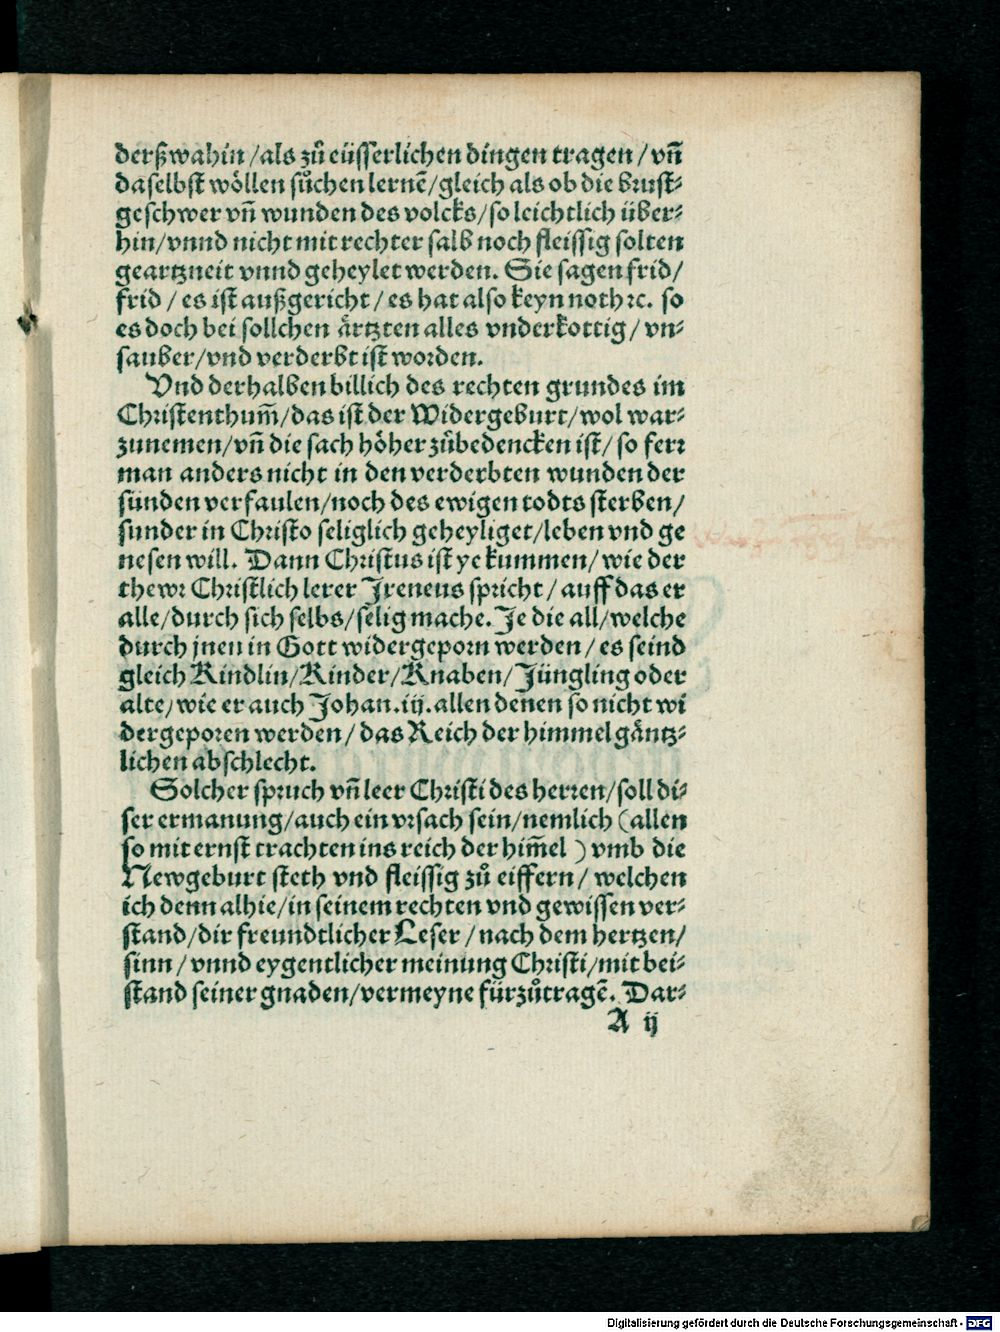 derßwahin /als zů eüsserlichen dingen tragen / vñ
daselbst wöllen sůchen lernẽ/gleich als ob die brust⸗
geschwer vñ wunden des volcks/so leichtlich über⸗
hin/vnnd nicht mit rechter salb noch fleissig solten
geartzneit vnnd geheylet werden. Sie sagen frid/
frid / es ist außgericht / es hat also keyn noth ꝛc. so
es doch bei sollchen ärtzten alles vnderkottig/ vn⸗
sauber/vnd verderbt ist worden.
Vnd derhalben billich des rechten grundes im
Christenthum̃/das ist der Widergeburt/wol war⸗
zunemen/vñ die sach höher zůbedencken ist/ so ferr
man anders nicht in den verderbten wunden der
sünden verfaulen/noch des ewigen todts sterben/
sunder in Christo seliglich geheyliget/leben vnd ge
nesen will. Dann Christus ist ye kummen/ wie der
thewr Christlich lerer Jreneus spricht / auff das er
alle/durch sich selbs/selig mache. Je die all/welche
durch jnen in Gott widergeporn werden / es seind
gleich Kindlin/Kinder/Knaben/Jüngling oder
alte/wie er auch Johan.iij.allen denen so nicht wi
dergeporen werden/ das Reich der himmel gäntz⸗
lichen abschlecht.
Solcher spruch vñ leer Christi des herren/soll di⸗
ser ermanung/auch ein vrsach sein/nemlich (allen
so mit ernst trachten ins reich der him̃el ) vmb die
Newgeburt steth vnd fleissig zů eiffern/ welchen
ich denn alhie/in seinem rechten vnd gewissen ver⸗
stand/dir freundtlicher Leser / nach dem hertzen/
sinn / vnnd eygentlicher meinung Christi/mit bei⸗
stand seiner gnaden/vermeyne fürzůtragẽ. Dar⸗
A ij
Digitalisierung gefördert durch die Deutsche Forschungsgemeinschaft - DFG